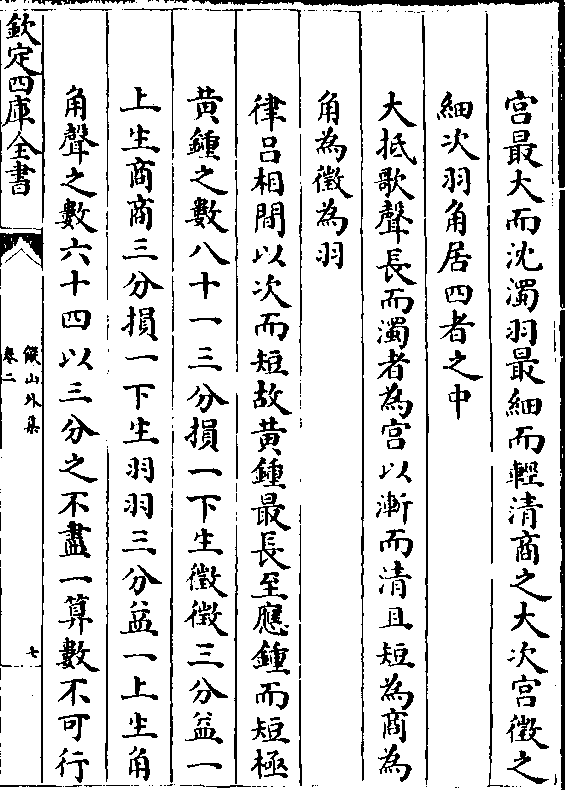 宮最大而沈濁羽最細而輕清商之大次宮徵之
細次羽角居四者之中
大抵歌聲長而濁者為宮以漸而清且短為商為
角為徵為羽
律吕相間以次而短故黄鍾最長至應鍾而短極
黄鍾之數八十一三分損一下生徵徵三分益一
上生商商三分損一下生羽羽三分益一上生角
角聲之數六十四以三分之不盡一算數不可行
欽定四庫全書
山外集
卷二
七